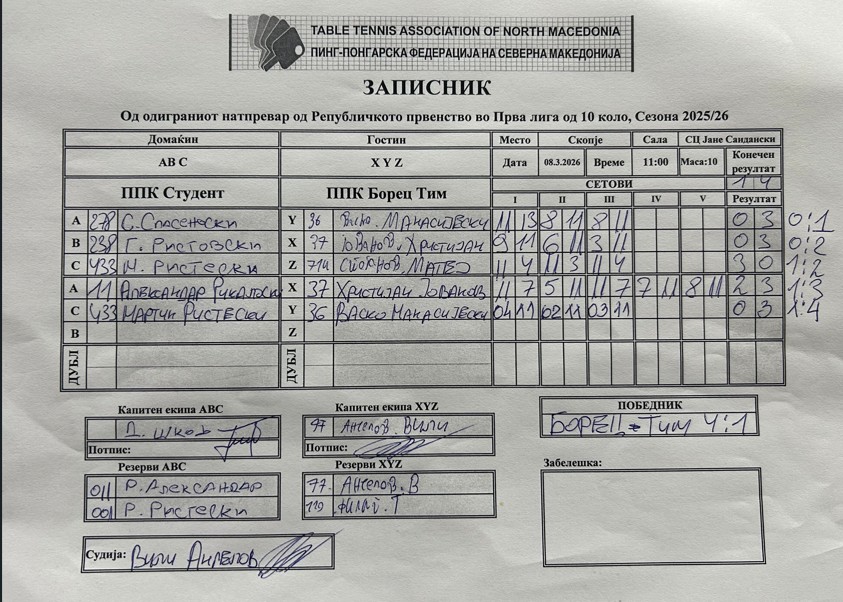 TABLE TENNIS ASSOCIATION OF NORTH MACEDONIA
ПИНГ-ПОНГАРСКА ФЕДЕРАЦИЈА НА СЕВЕРНА МАКЕДОНИЈА
ЗАПИСНИК
Од одиграниот натпревар од Републичкото првенство во Прва лига од 10 коло, Сезона 2025/26
Домаќин Гостин Место Скопје Сала СЦ Јане Сандански
A B C X Y Z Дата 08.3.2026 Време 11:00 Маса:10 Конечен резултат
1 4
ППК Студент ППК Борец Тим СЕТОВИ
I II III IV V Резултат
A 278 С. Спасеноски Y 36 Манасијески 11 13 8 11 8 11 0 3 0:1
B 238 Г. Ристовски X 37 Јованов. Христијан 9 11 6 11 3 11 0 3 0:2
C 433 М. Ристески Z 714 Стојанов. Матеј 11 4 11 3 11 4 3 0 1:2
A 11 Александар Рикалоски X 37 Христијан Јованов 11 7 5 11 11 7 7 11 8 11 2 3 1:3
C 433 Мартин Ристески Y 36 Васко Манасијески 04 11 02 11 03 11 0 3 1:4
B Z
ДУБЛ ДУБЛ
Капитен екипа ABC Капитен екипа XYZ ПОБЕДНИК
Д. Шков 77 Ангелов. Вили Борец-Тим 4:1
Потпис: Потпис:
Резерви ABC Резерви XYZ Забелешка:
011 Р. Александар 77. Ангелов. В
001 Р. Ристески 119
Судија: Вили Ангелов